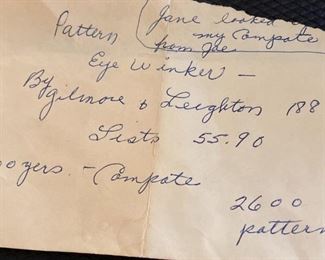 Pattern
Jane looked
my Compote
from Joe
Eye Winker —
By Gilmore & Leighton 188
Lists 55.90
oyers. - Compote
2600
pattern